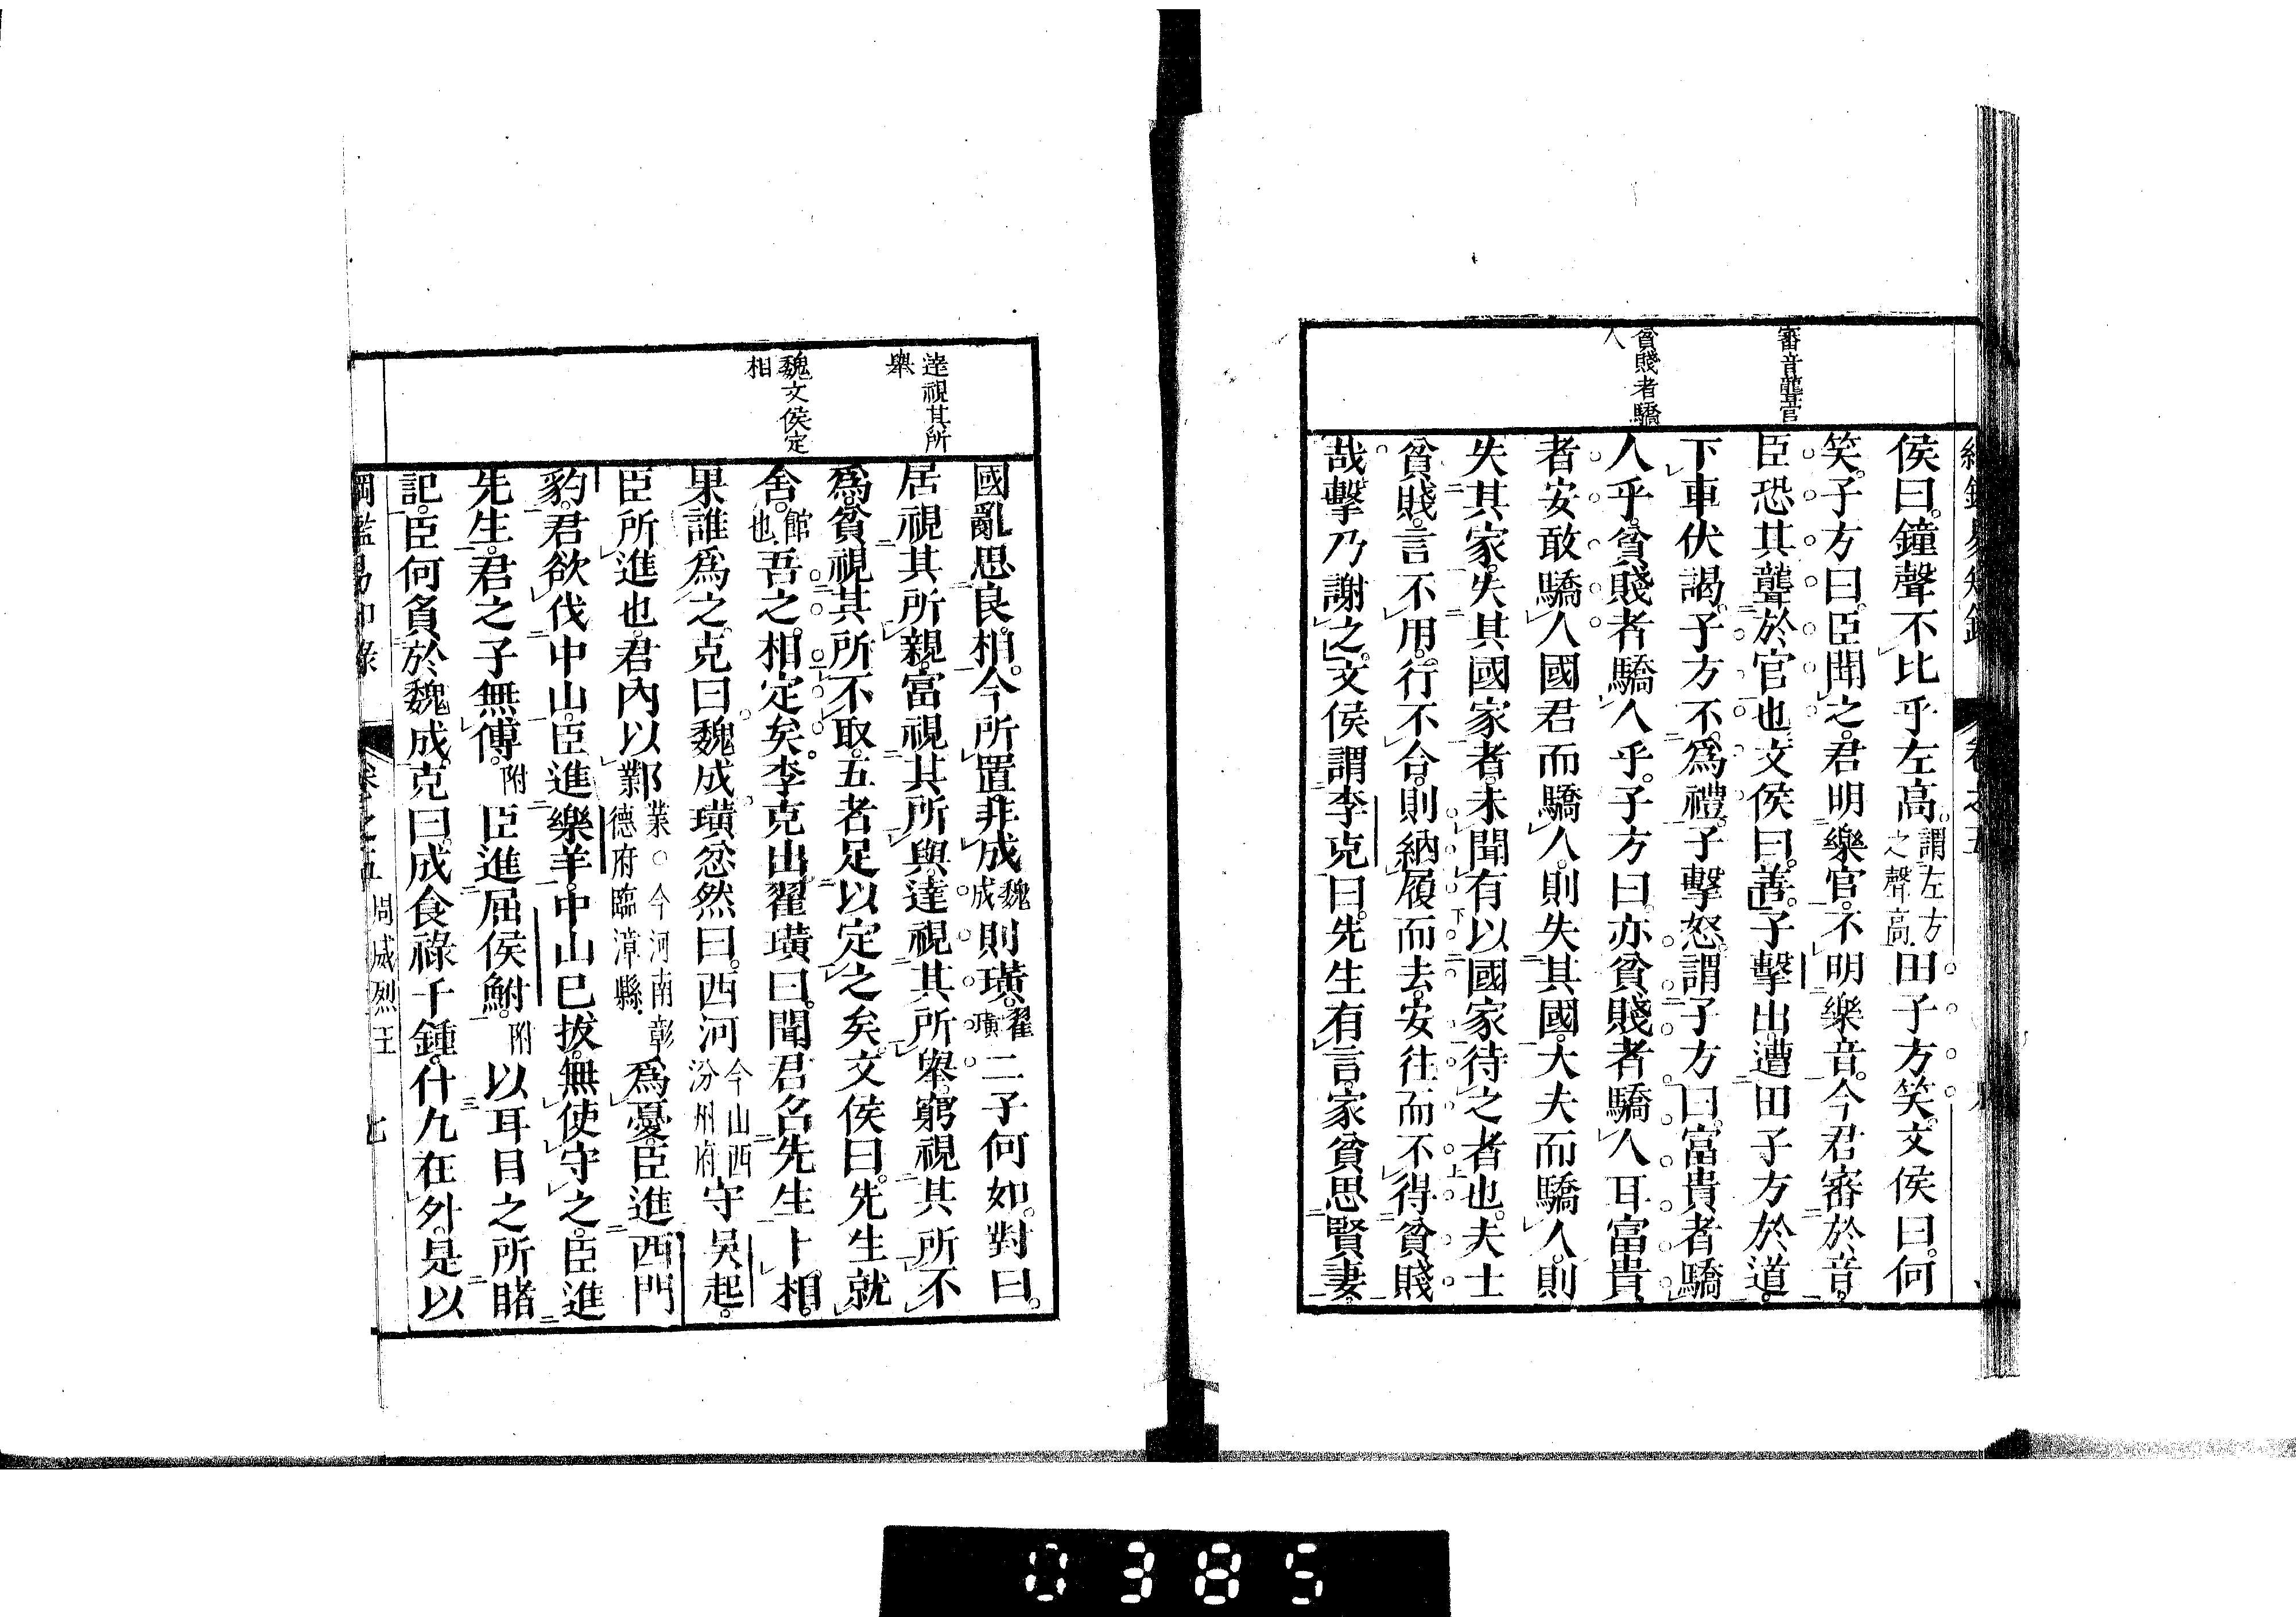 審音聾官
貧賤者驕
人
侯曰。鐘聲不比乎左高。謂左方之聲高。田子方笑。文侯曰。何
笑。子方曰。臣聞之。君明樂官。不明樂音。今君審於音。
臣恐其聾於官也。文侯曰。善。子擊出遭田子方於道。
下車伏謁。子方不為禮。子擊怒。謂子方曰。富貴者驕
人乎。貧賤者驕人乎。子方曰。亦貧賤者驕人耳。富貴
者安敢驕人。國君而驕人。則失其國。大夫而驕人。則
失其家。失其國家者。未聞有以國家待之者也。夫士
貧賤。言不用。行不合。則納履而去。安往而不得貧賤
哉。擊乃謝之。文侯謂李克曰。先生有言。家貧思賢妻。
達視其所
舉
魏文侯定
相
國亂思良相。今所置非成魏成則璜。翟璜二子何如。對曰。
居視其所親。富視其所與。達視其所舉。窮視其所不
為。貧視其所不取。五者足以定之矣。文侯曰。先生就
舍。館也吾之相定矣。李克出翟璜曰。聞君召先生卜相。
果誰為之。克曰魏成。璜忿然曰。西河今山西汾州府守吳起。
臣所進也。君內以鄴業○今河南彰德府臨漳縣為憂。臣進西門
豹。君欲伐中山。臣進樂羊。中山已拔。無使守之。臣進
先生。君之子無傅。附臣進屈侯鮒。附以耳目之所睹
記。臣何負於魏成。克曰。成食祿千鍾。什九在外。是以
綱鑑易知錄 卷之五 周威烈王 七